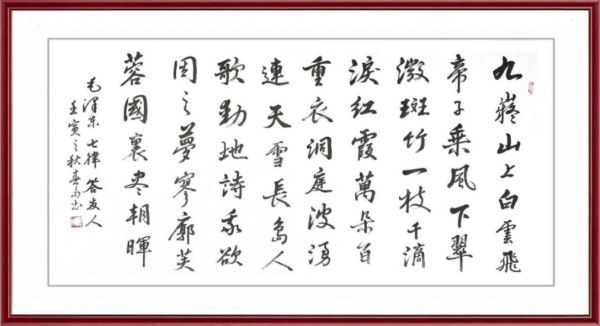 九嶷山上白雲飛
帝子乘風下翠
微斑竹一枝千滴
淚紅霞萬朵百
重衣洞庭波湧
連天雪長島人
歌動地詩我欲
因之夢寥廓芙
蓉國裏盡朝暉
毛澤東七律答友人
壬寅之秋春山書